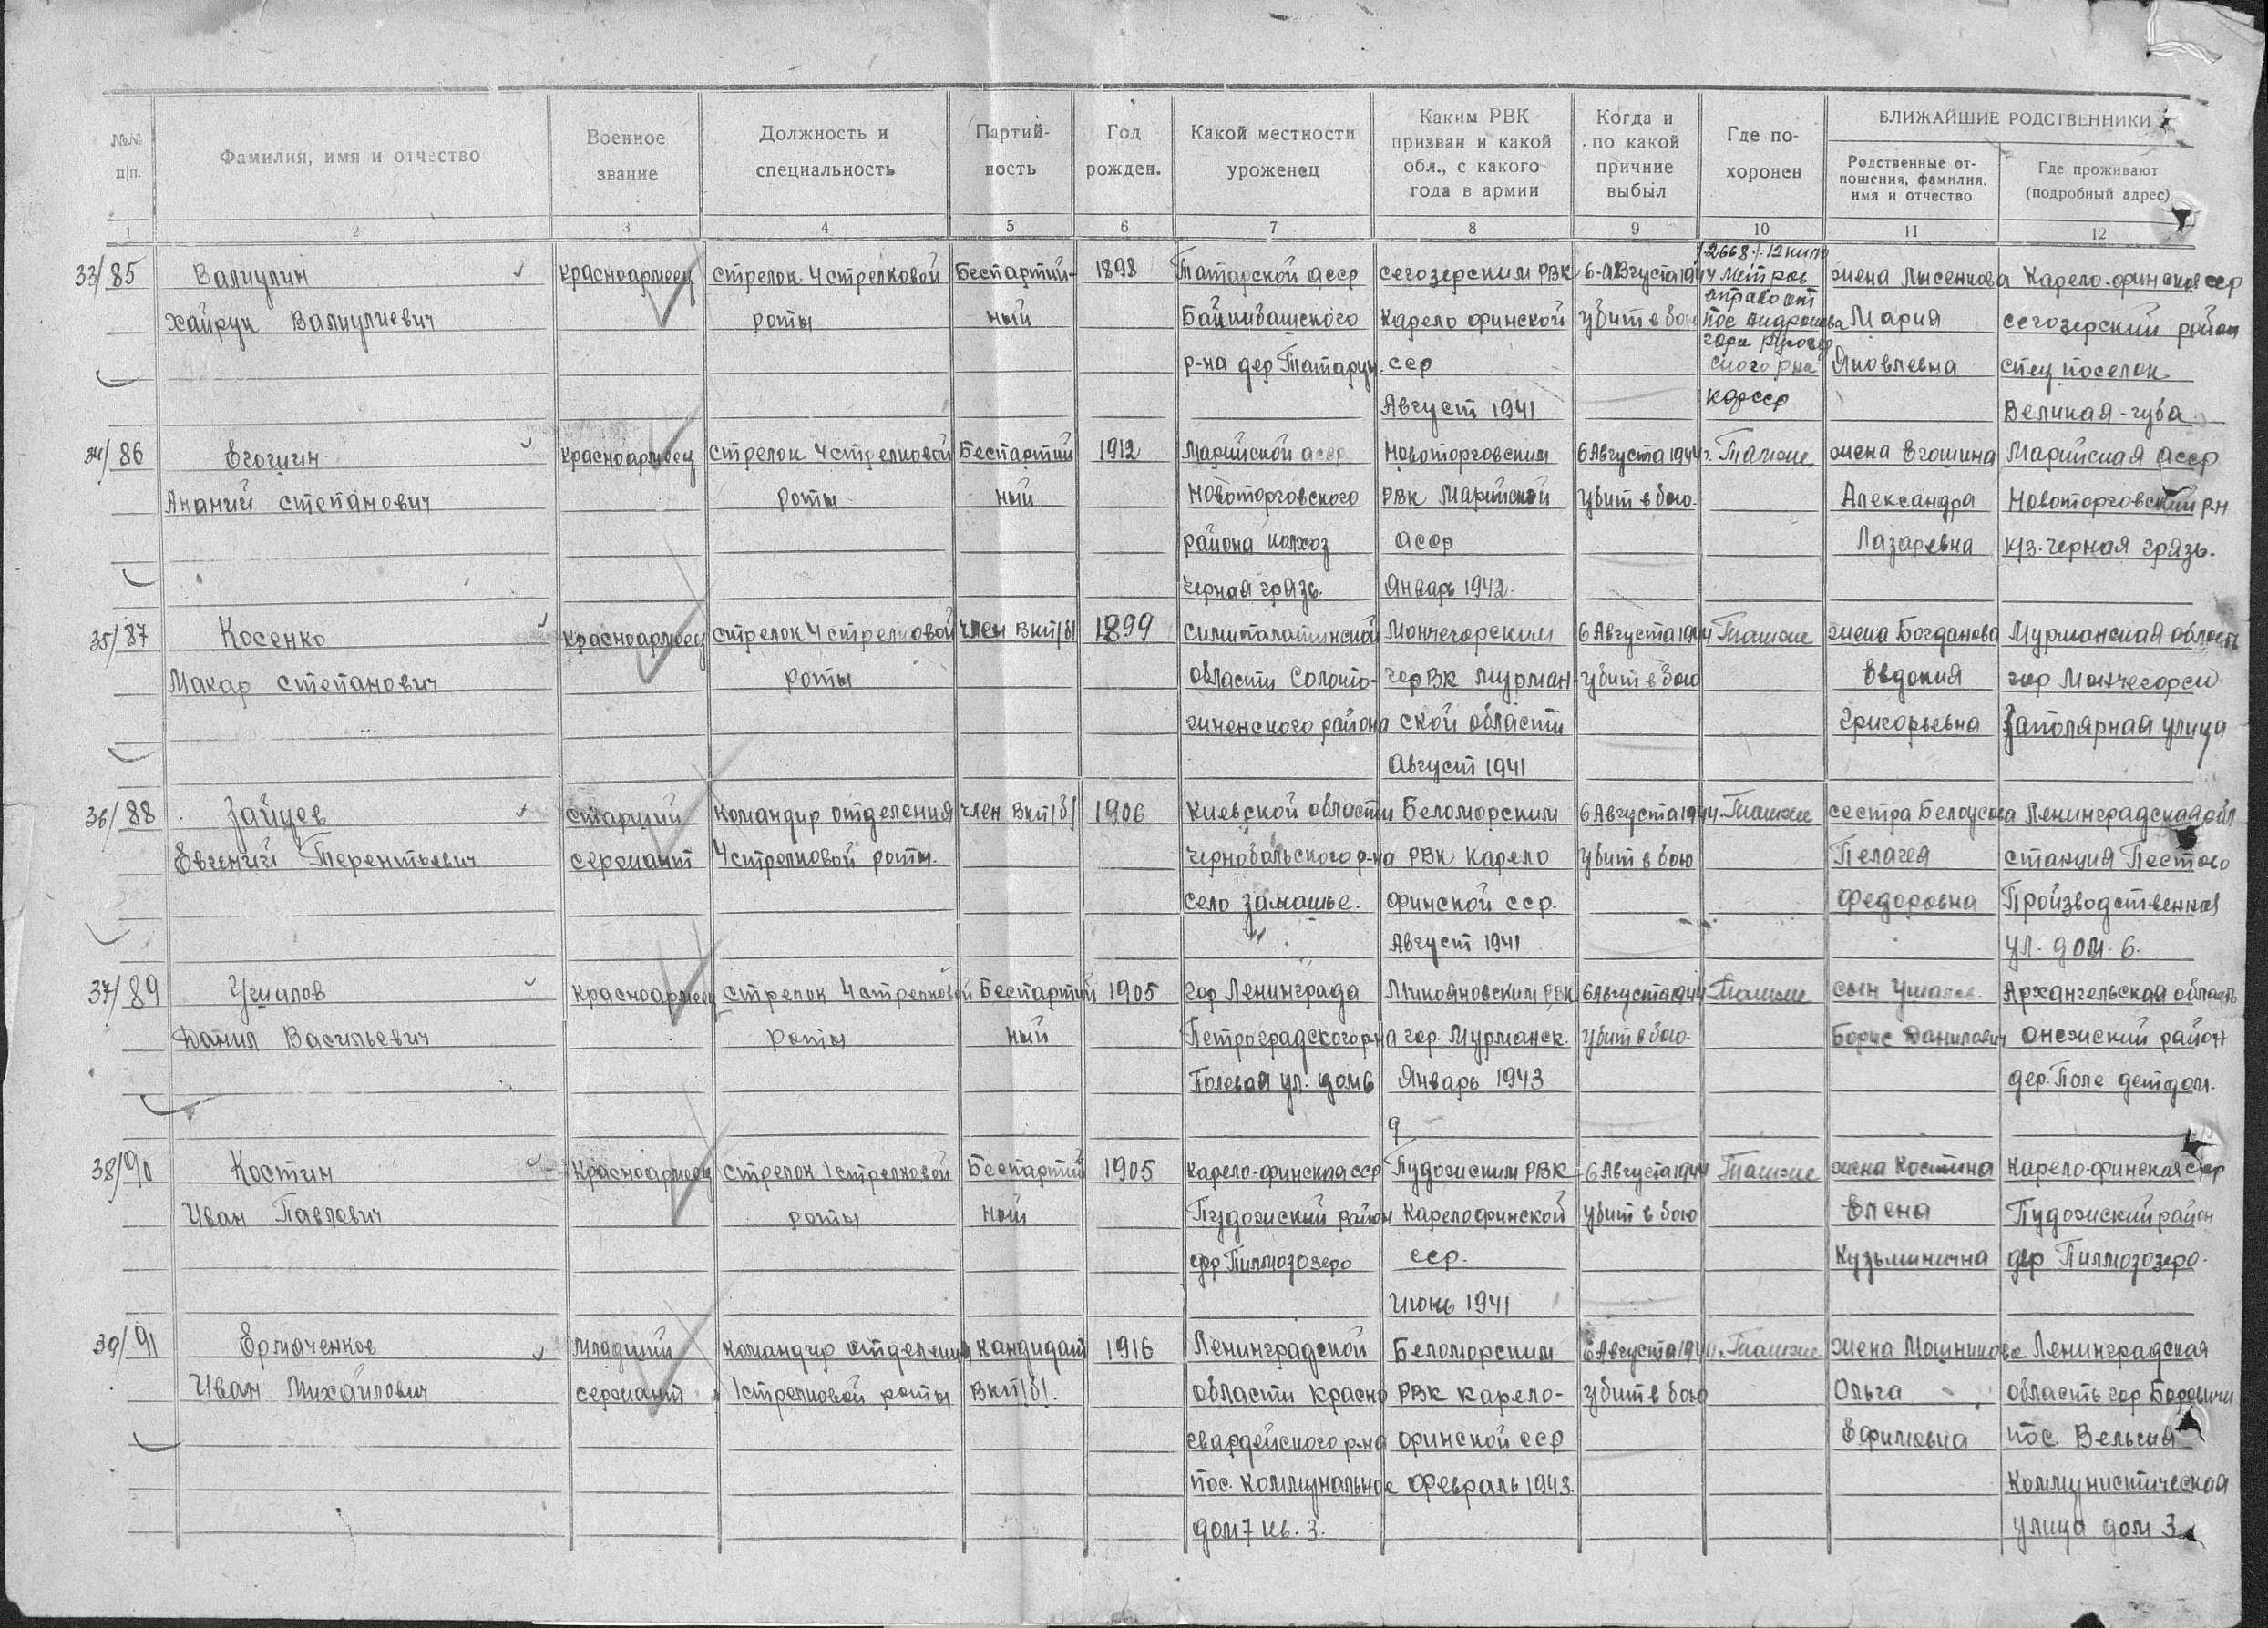 №№ п/п.
Фамилия, имя и отчество
Военное звание
Должность и специальность
Партий-
ность
Год рожден.
Какой местности уроженец
Каким РВК призван и какой обл., с какого года в армии
Когда и по какой причине выбыл
Где по-
хоронен
БЛИЖАЙШИЕ РОДСТВЕННИКИ
Родственные от-
ношения, фамилия, имя и отчество
Где проживают (подробный адрес)
1 2 3 4 5 6 7 8 9 10 11 12
33/85
Валиулин
Хайрук Валиулиевич
красноармеец
стрелок 4 стрелковой
роты
Беспартий-
ный
1898
Татарской асср
Байкибашского
р-на дер Татаруч.
сегозерским РВК
Карело финской
сср
Август 1941
6-Августа 1944
убит в бою
/2668./.12 кило
метров
вправо от
пос андронова
гора Ругозер
ского рна
кфсср
жена Лысенкова
Мария
Яковлевна
Карело-финской сср
сегозерский район
спец поселок
Великая-губа
34/86
Егошин
Ананий степанович
красноармеец
стрелок 4 стрелковой
роты
Беспартий
ный
1912
Марийской асср
Новоторговского
района колхоз
черная грязь.
Новоторговским
РВК Марийской
асср
Январь 1942.
6 Августа 1944 г.
убит в бою.
Также
жена Егошина
Александра
Лазаревна
Марийская асср
Новоторговский р-н
к/з. черная грязь.
35/87
Косенко
Макар степанович
красноармеец
стрелок 4 стрелковой
роты
член ВКП/б/
1899
симипалатинской
области Солоно-
чиненского района
Мончегорским
гор ВК Мурман-
ской области
Август 1941
6 Августа 1944
убит в бою
Также
жена Богданова
Евдокия
Григорьевна
Мурманская область
гор Мончегорск
Заполярная улица
36/88
Зайцев
Евгений Терентьевич
старший
сержант
командир отделения
4 стрелковой роты.
член ВКП/б/
1906
Киевской области
чернобольского р-на
село замошье.
Беломорским
РВК Карело
финской сср.
Август 1941
6 Августа 1944
убит в бою
Также
сестра Белоусова
Пелагея
Федоровна
Ленинградская обл
станция Пестово
Производственная
ул. дом. 6.
37/89
Ушалов
Данил Васильевич
красноармеец
стрелок 4 стрелковой
роты
Беспартий
ный
1905
гор Ленинграда
Петроградского р-на
Полевая ул. дом 6
Микояновским РВК
гор. Мурманск.
Январь 1943
6 Августа 1944
убит в бою.
Также
сын
Борис Данилович
Архангельская область
онежский район
дер. Поле детдом.
38/90
Костин
Иван Павлович
Красноармеец
стрелок 1 стрелковой
роты
Беспартий
ный
1905
карело-финская сср
Пудожский район
дер Пилмозозеро
Пудожским РВК
Карело финской
сср.
Июнь 1941
6 Августа 1944
убит в бою
Также
жена Костина
Елена
Кузьминична
карело-финская сср
Пудожский район
дер Пилмозозеро.
39/91
Ермаченков
Иван Михайлович
Младший
сержант
командир отделения
1 стрелковой роты
кандидат
ВКП/б/.
1916
Ленинградской
области красно
гвардейского р-на
пос. коммунальное
дом 7 кв. 3.
Беломорским
РВК карело-
финской сср
Февраль 1943.
6 Августа 1944 г.
убит в бою
Также
жена Мошникова
Ольга
Ефимовна
Ленинградская
область гор Боровичи
пос. Вельгия
коммунистическая
улица дом 3.